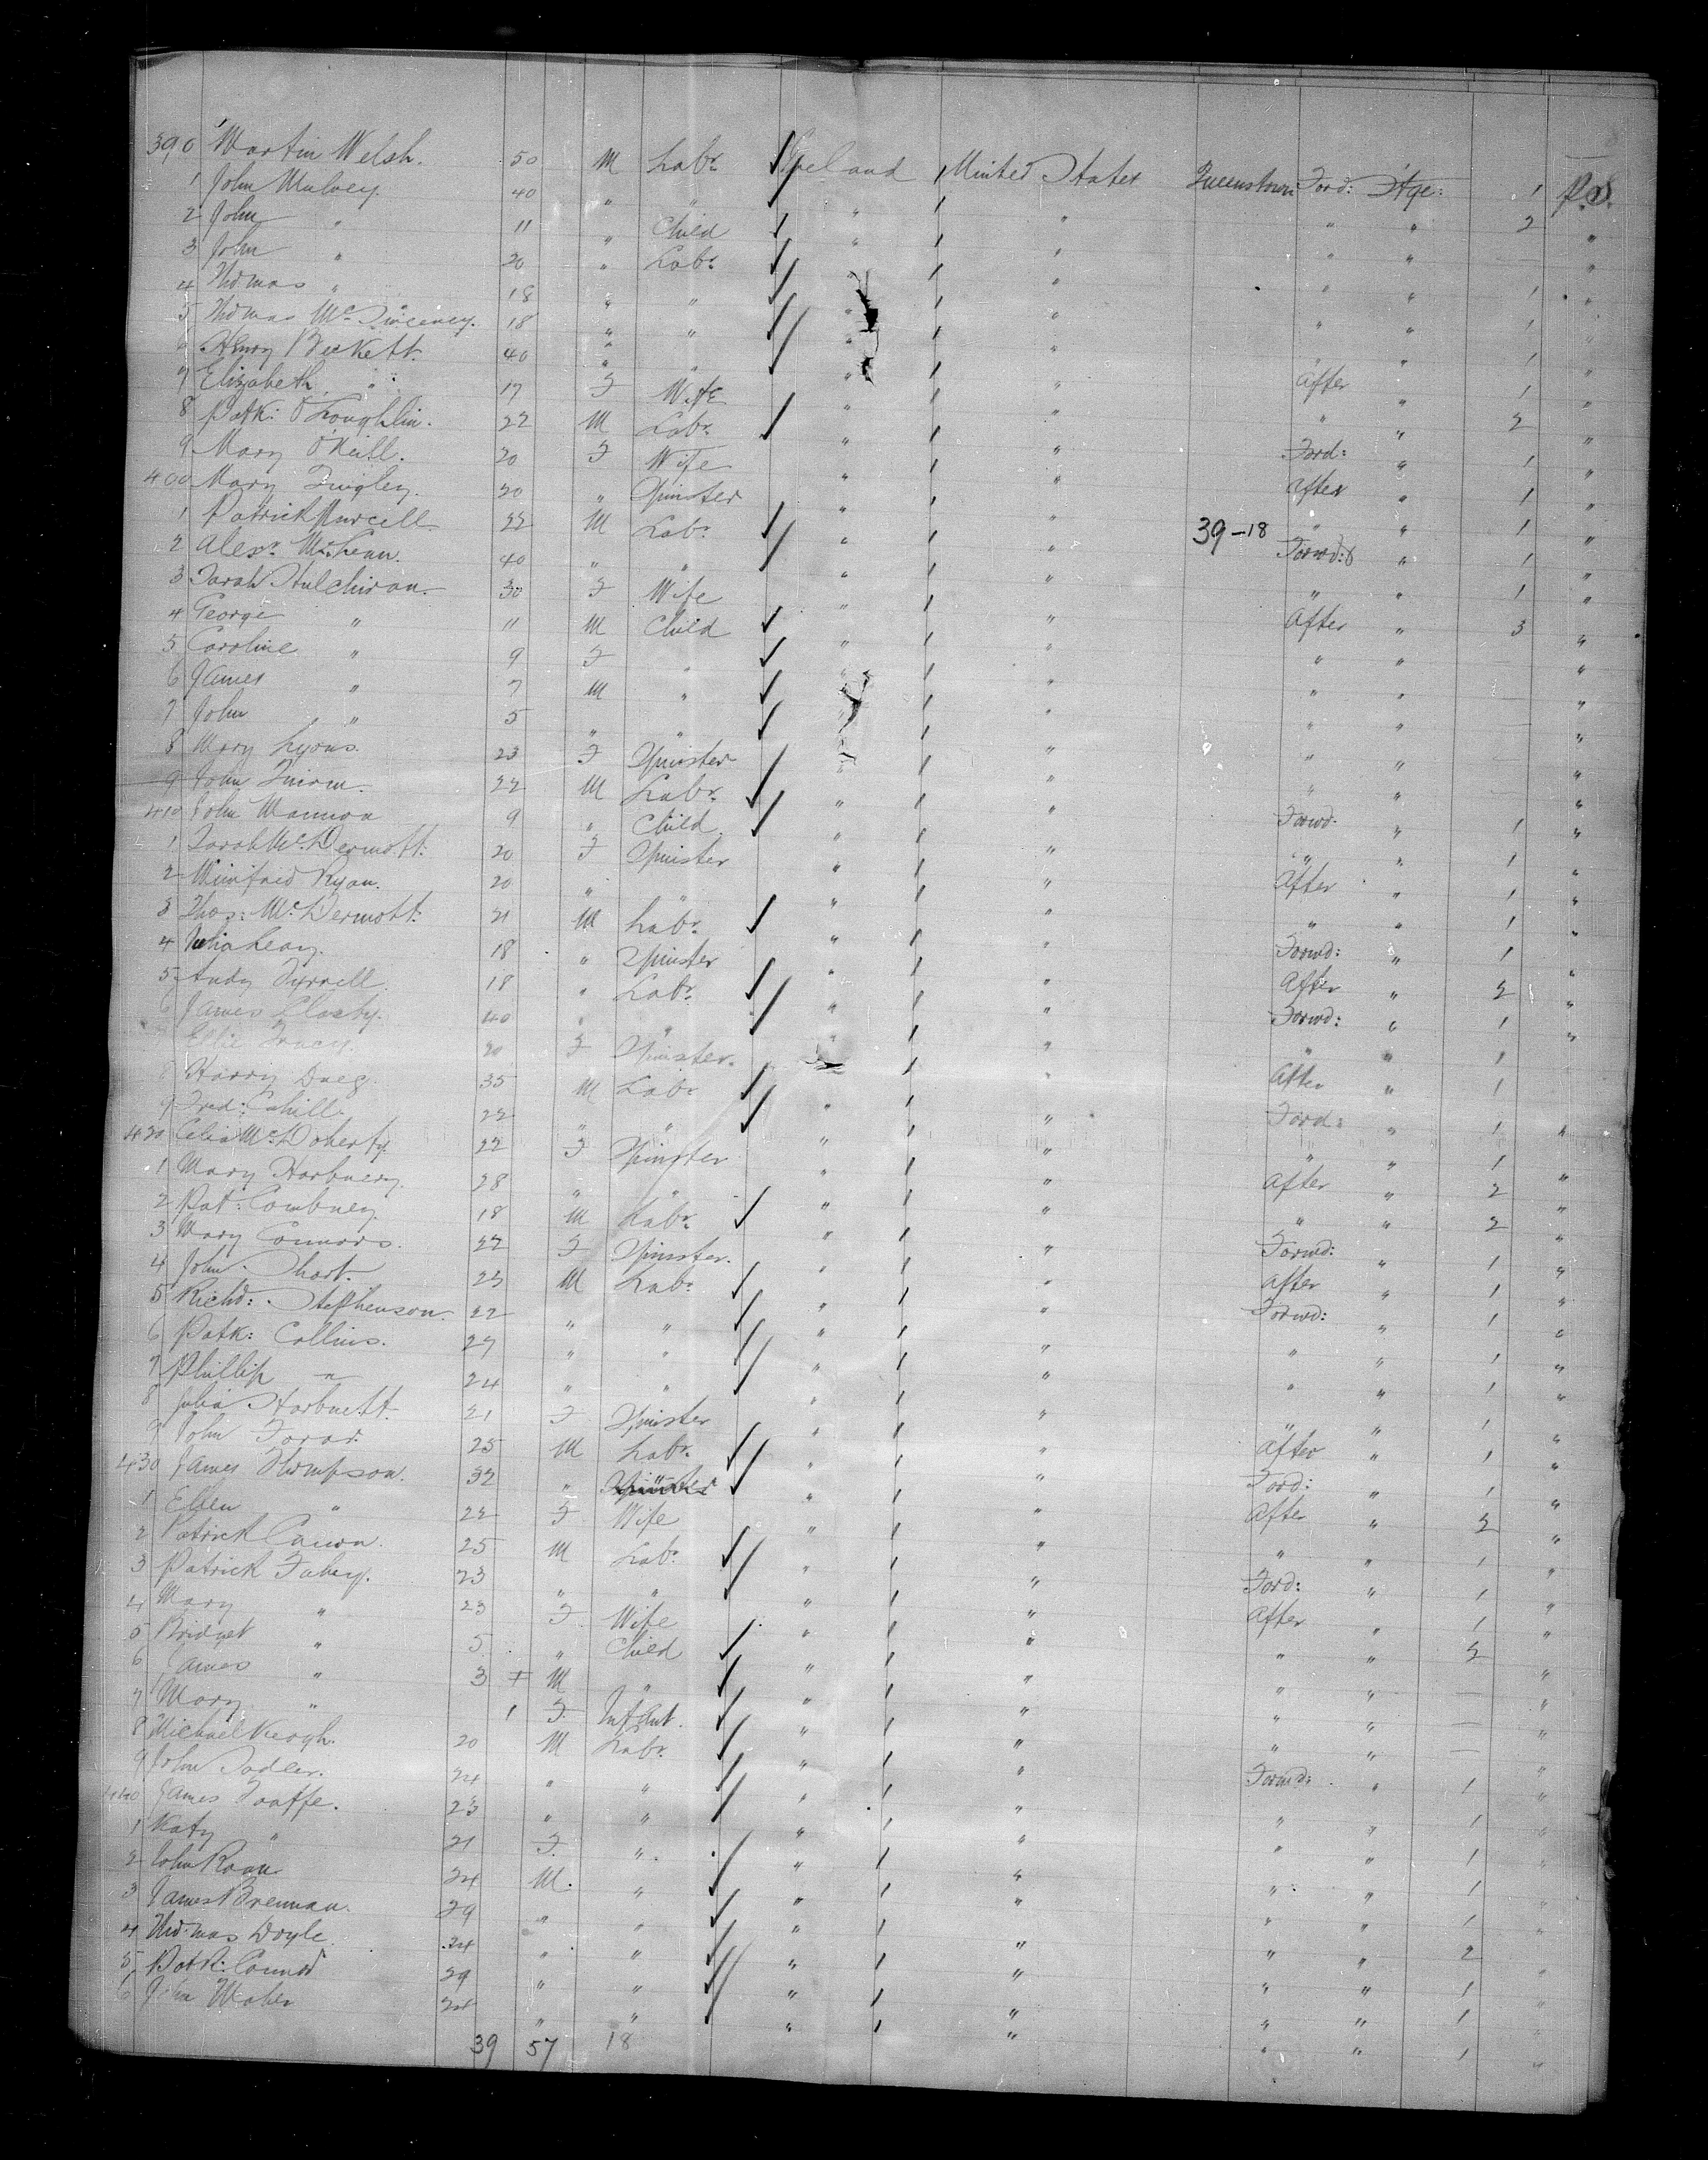 390 Martin Welsh. 50 M Labr. Ireland United States Queenstown Ford: Stge: 1 P.S.
1 John Mulvey. 40 " " " " " " 2 "
2 John " 11 " Child " " " " — "
3 John " 20 " Labr. " " " " 1 "
4 Thomas " 18 " " " " " " 1 "
5 Thomas McSweeney. 18 " " " " " " 1 "
6 Henry Beckett. 40 " " " " After " 1 "
7 Elizabeth " 17 F Wife " " " " 2 "
8 Patk: O'Loughlin. 22 M Labr. " " Ford: " 1 "
9 Mary O'Neill. 20 F Wife " " After " 1 "
400 Mary 20 " Spinster " " " " 1 "
1 Patrick Purcell 22 M Labr. " " 39-18 Forwd: " 1 "
2 Alexr. McLean. 40 " " " " " " 1 "
3 Sarah Hutchison. 30 F Wife " " After " 3 "
4 George " 11 M Child " " " " — "
5 Caroline " 9 F " " " " " — "
6 James " 7 M " " " " " — "
7 John " 5 " " " " " " — "
8 Mary Lyons. 23 F Spinster " " " "
9 John 22 M Labr. " " Forwd. " 1 "
410 John Mannon 9 " Child. " " " " 1 "
1 Sarah McDermott. 20 F Spinster " " After " 1 "
2 Winifred Ryan. 20 " " " " " " 1 "
3 Thos: McDermott. 21 M Labr. " " Forwd: " 1 "
4 Julia Leary. 18 " Spinster " " After " 2 "
5 Andy Tyrrell. 18 " Labr. " " Forwd: " 1 "
6 James Closby. 40 " " " " " " 1
7 Ellie Tracy. 20 F Spinster. " " After " 1
8 Harry 35 M Labr. " Ford: " 1 "
9 Fred: Cahill. 22 " " " " " " 1
420 Celia McDoherty. 22 F Spinster " " After " 2 "
1 Mary Harbuery. 28 " " " " " " 2 "
2 Pat: 18 M Labr. " " Forwd: " 1 "
3 Mary Connors. 22 F Spinster. " " After " 1 "
4 John Short. 23 M Labr. " " Forwd: " 1 "
5 Richd: Stephenson. 22 " " " " " " 1 "
6 Patk: Collins. 27 " " " " " " 1 "
7 Phillip " 24 " " " " " " 1 "
8 Julia Harbuett. 21 F Spinster " " After " 1 "
9 John 25 M Labr. " " Ford: " 1 "
430 James Thompson. 32 " Spinster " " After " 2 "
1 Ellen " 22 F Wife " " " " 1 "
2 Patrick 25 M Labr. " " Ford: " 1 "
3 Patrick Fahey. 23 " " " " After " 1 "
4 Mary " 23 F Wife " " " " 2 "
5 Bridget " 5 " Child " " " " — "
6 James " 3 + M " " " " " — "
7 Mary " 1 F Infant. " " " " — "
8 Michael Keogh. 20 M Labr. " " Forwd: " 1 "
9 John Sadler. 24 " " " " " " 1 "
440 James Taaffe. 23 " " " " " " 1 "
1 Katy " 21 F. " " " " " 1 "
2 John 24 M. " " " " " 1 "
3 James Brennan. 29 " " " " " " 2 "
4 Thomas Doyle. 24 " " " " " " 1 "
5 Patk: 29 " " " " " " 1 "
6 John Maher 24 " " " " " " 1 "
39 57 18